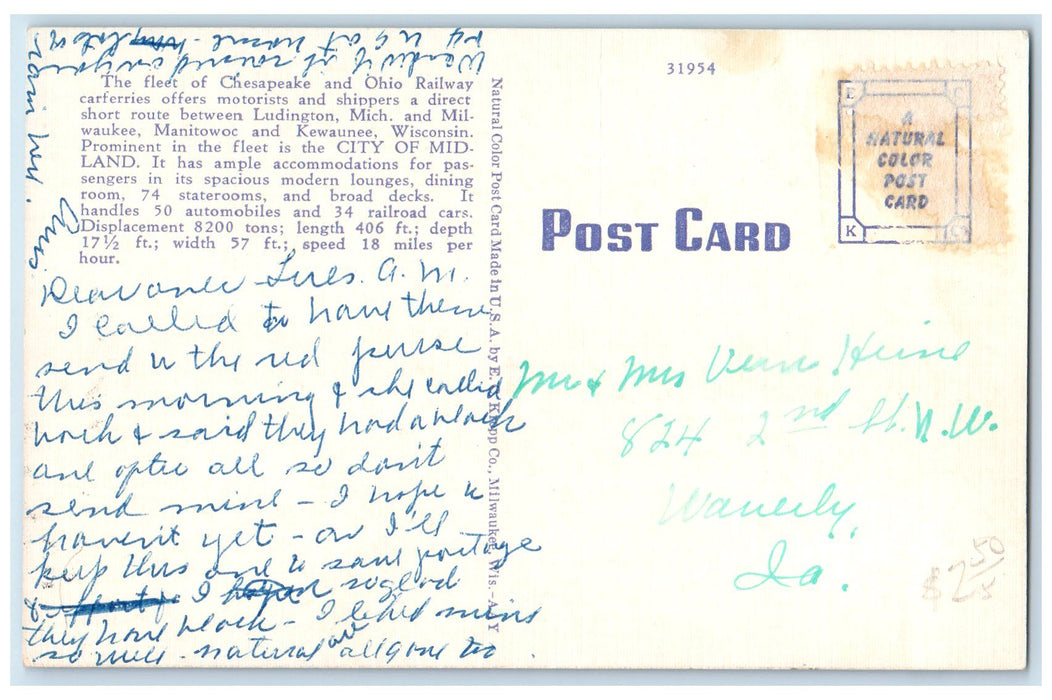 31954
The fleet of Chesapeake and Ohio Railway
carferries offers motorists and shippers a direct
short route between Ludington, Mich. and Mil-
waukee, Manitowoc and Kewaunee, Wisconsin.
Prominent in the fleet is the CITY OF MID-
LAND. It has ample accommodations for pas-
sengers in its spacious modern lounges, dining
room, 74 staterooms, and broad decks. It
handles 50 automobiles and 34 railroad cars.
Displacement 8200 tons; length 406 ft.; depth
17½ ft.; width 57 ft.; speed 18 miles per
hour.
A
NATURAL
COLOR
POST
CARD
E C
K C
POST CARD
Natural Color Post Card Made in U.S.A. by E. C. Kropp Co., Milwaukee, Wis.
A.M.
I called to have them
send u the red purse
this morning & she called
back & said they had a black
one after all so don't
send mine - I hope u
haven't yet - or I'll
keep this one to save postage
& I so glad
they have black - I liked mine
so well - natural are all gone too
at home -
rain here.
Mr & Mrs Vern Heine
824 2nd St. N.W.
Waverly,
Ia.
$2 50